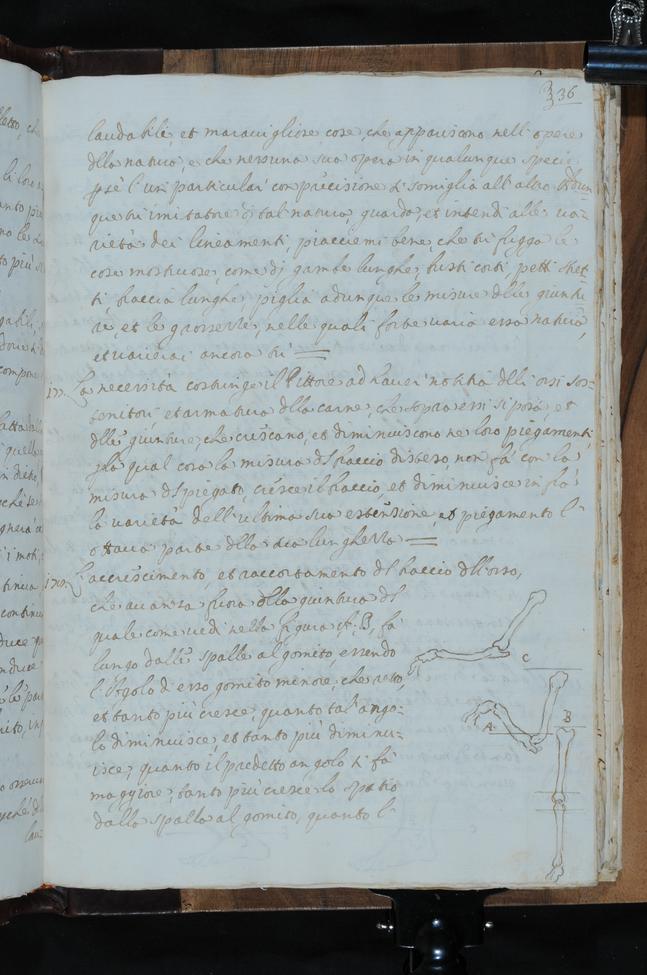 336
laudabili, et maravigliose cose, che appariscono nell'opere
dlla natura, e che nessuna sua opera in qualunque specie
p se l'usi particulari con precisione si somiglia all'altra Adun
que tu imitatore di tal natura, guarda, et intendi alle va-
rietà dei lineamenti, piacciemi bene, che tu fugga le
cose mostruose, come di gambe lunghe, busti corti, petti stret
ti, braccia lunghe piglia adunque le misure dlle giuntu
re, et le grossezze, nelle quali forte varia essa natura,
et varierai ancora tu =
177. La necessità costringe il Pittore ad haver notitia dlli ossi sos-
tenitori, et armatura dlla carne, che sopra essi si posa, et
dlle giunture, che crescano, et diminuiscono ne loro piegamenti,
p la qual cosa la misura dl braccio disteso, non fà con la
misura dl piegato, cresce il braccio, et diminuisce in frà
la varietà dell'ultima sua estensione, et piegamento l'
ottava parte dlla sua lunghezza =
178. L'accrescimento, et raccortamento dl braccio dll'osso,
che avanza fuora dlla giuntura dl
quale come vedi nella figura A. B, fà
lungo dalle spalle al gomito, essendo
l'Agolo di esso gomito minore, che retto,
et tanto più cresce, quanto tal ango-
lo diminuisce, et tanto più diminu-
isce, quanto il predetto angolo si fà
maggiore, tanto più cresce lo spatio
dalla spalla al gomito, quanto l'
C
A
B